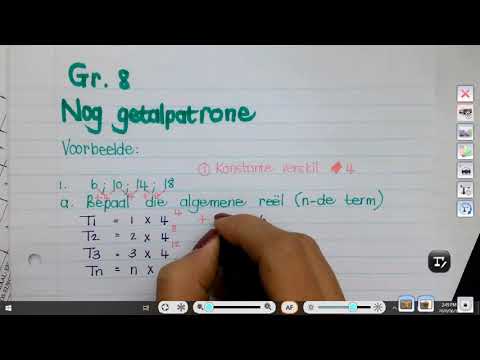 Gr. 8
Nog getalpatrone
Voorbeelde:
① Konstante verskil 4
1. 6; 10; 14; 18
a. Bepaal die algemene reël (n-de term)
T1 = 1 × 4 4 +
T2 = 2 × 4 8
T3 = 3 × 4 12
Tn = n ×
AF